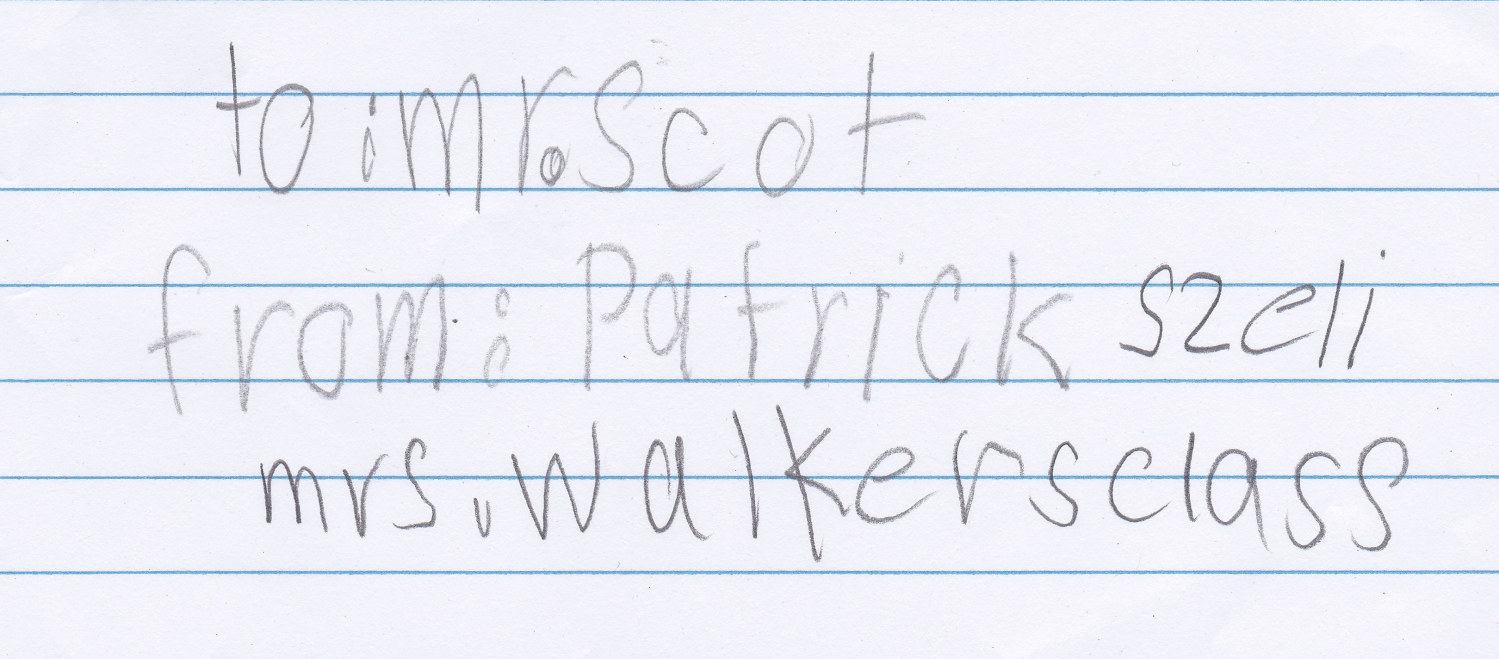 to: mr. Scot
from: Patrick szeli
mrs. walkersclass